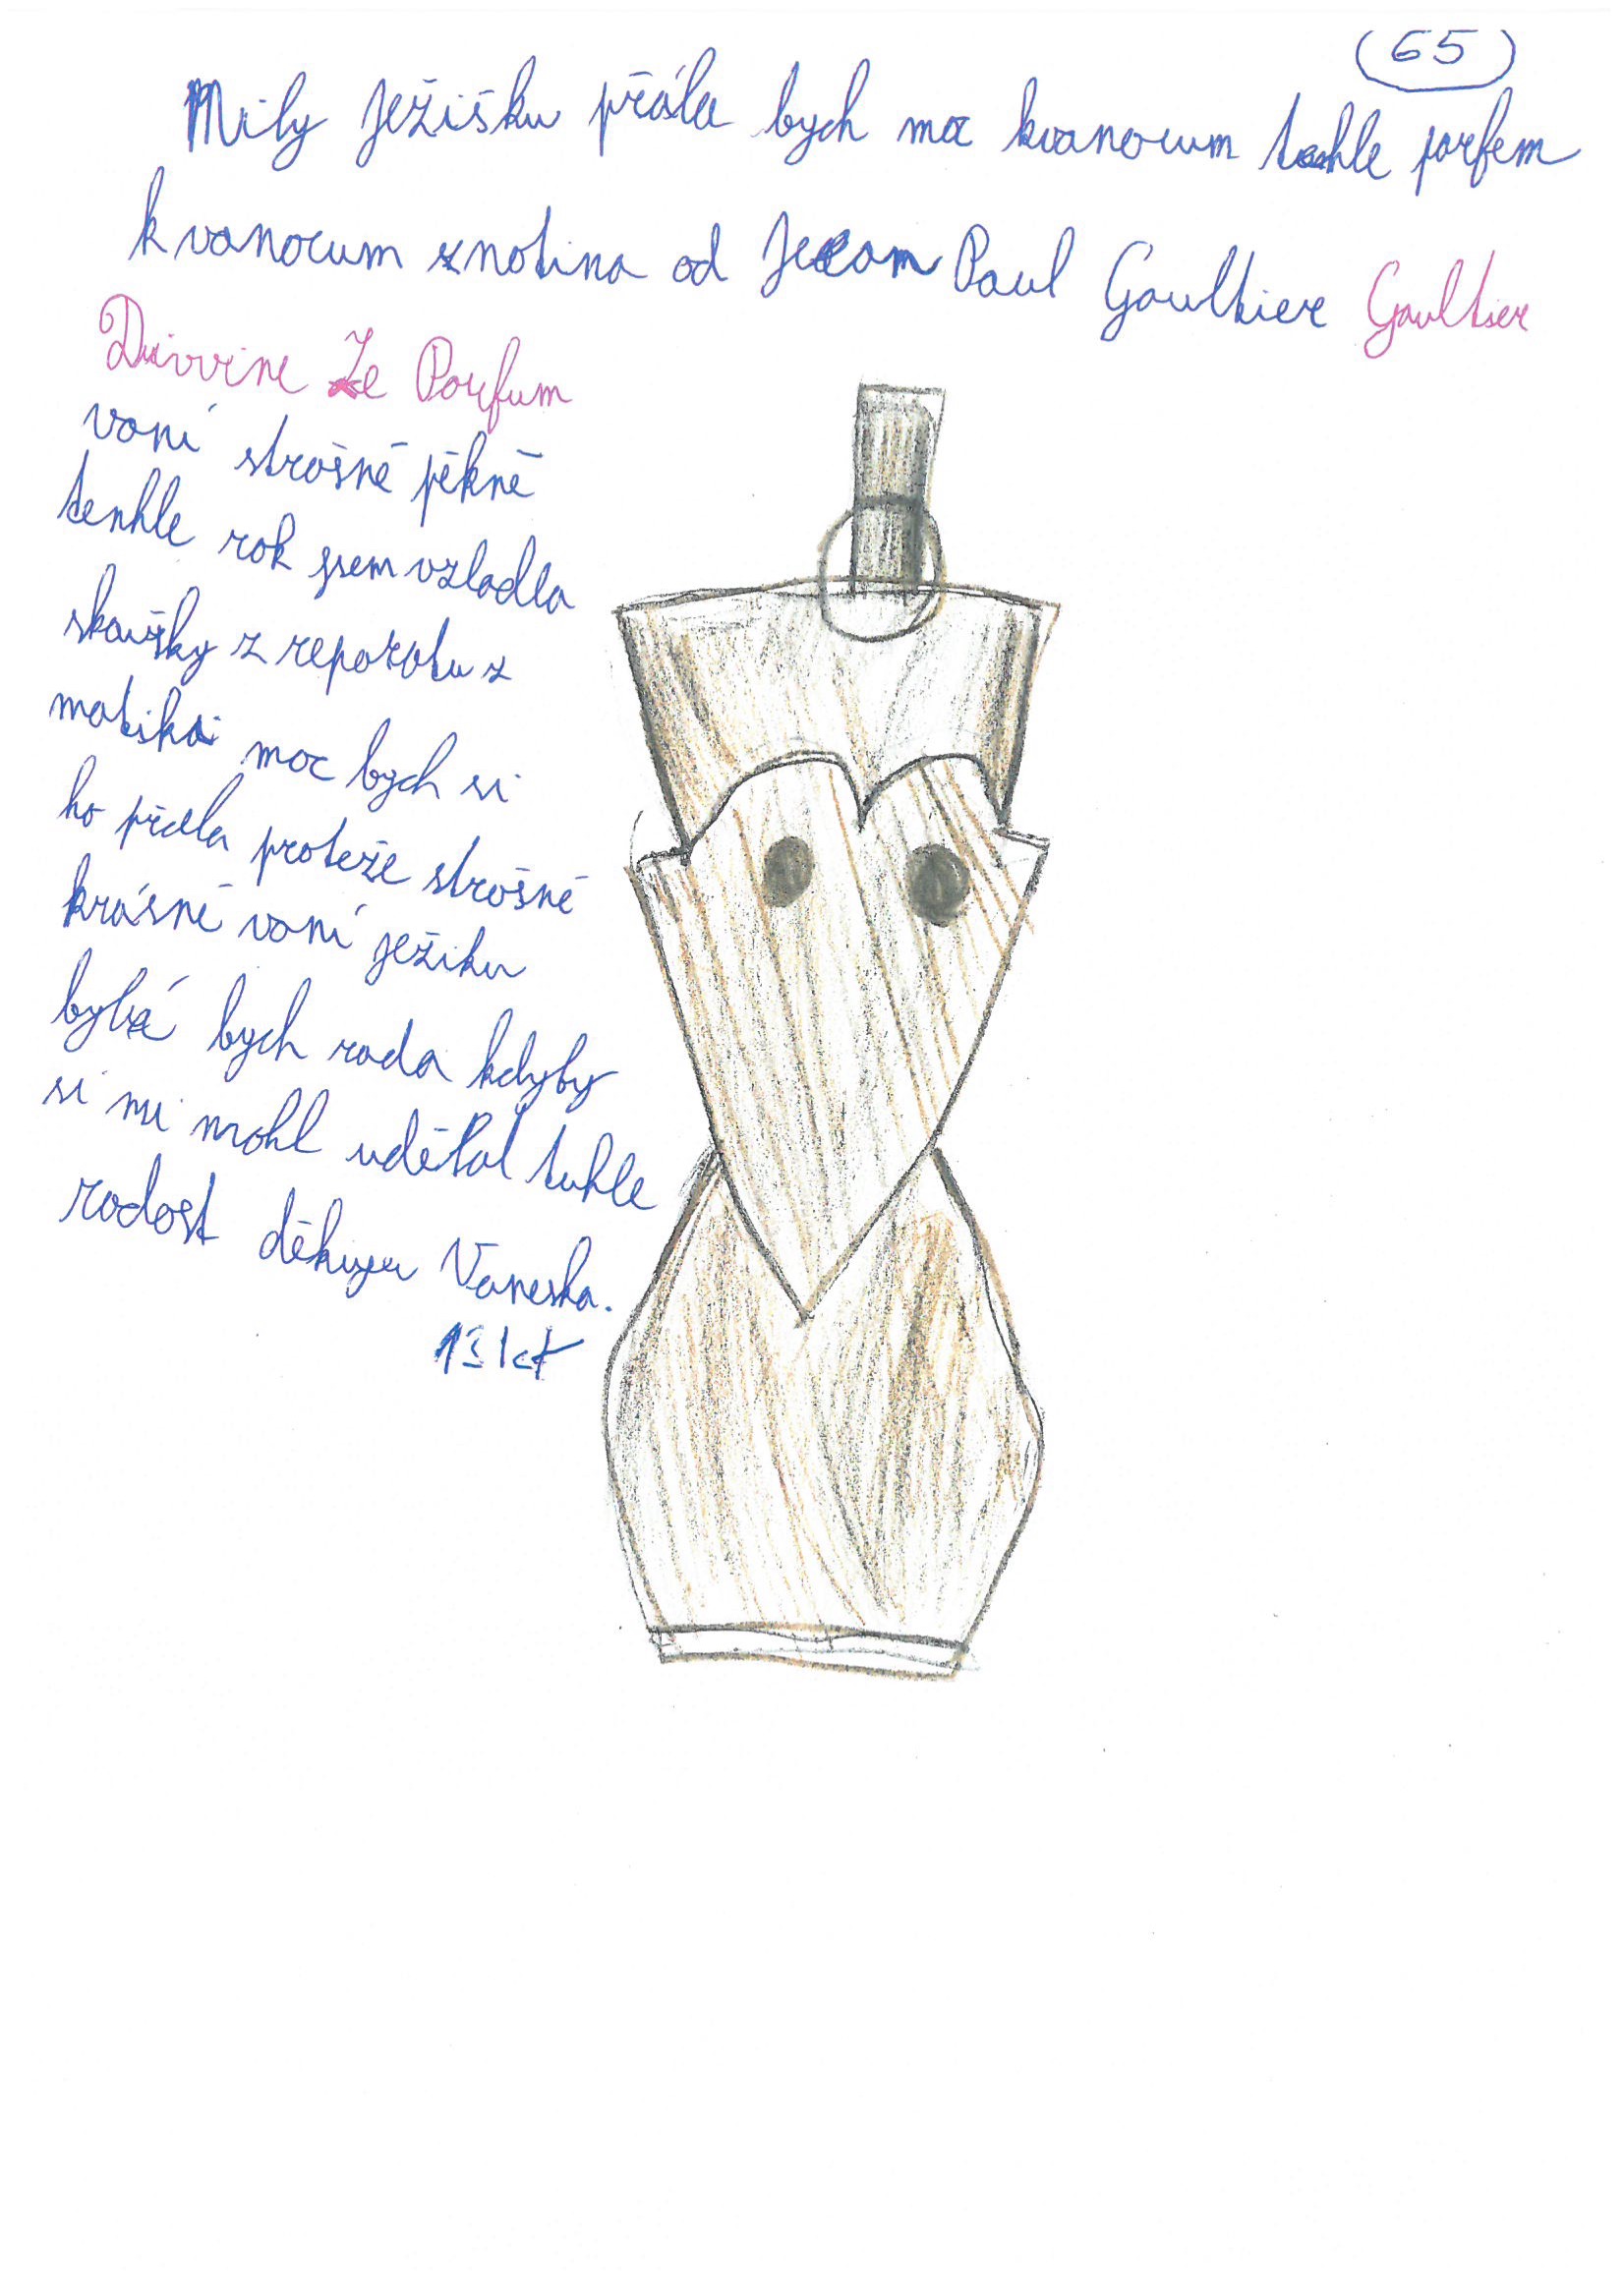 65
Mily Ježišku přála bych moc kvanocum tenhle parfem
k vanocum znotina od Jean Paul Gaultier Gaultier
Divvine Le Parfum
voní strašně pěkně
tenhle rok jsem vzladla
skoušky z reporatu z
matika moc bych si
ho přála proteže strašně
krásně voní ježiku
bylá bych rada kdyby
si mi mohl udělal tuhle
radost děkuju Vaneska.
13 let